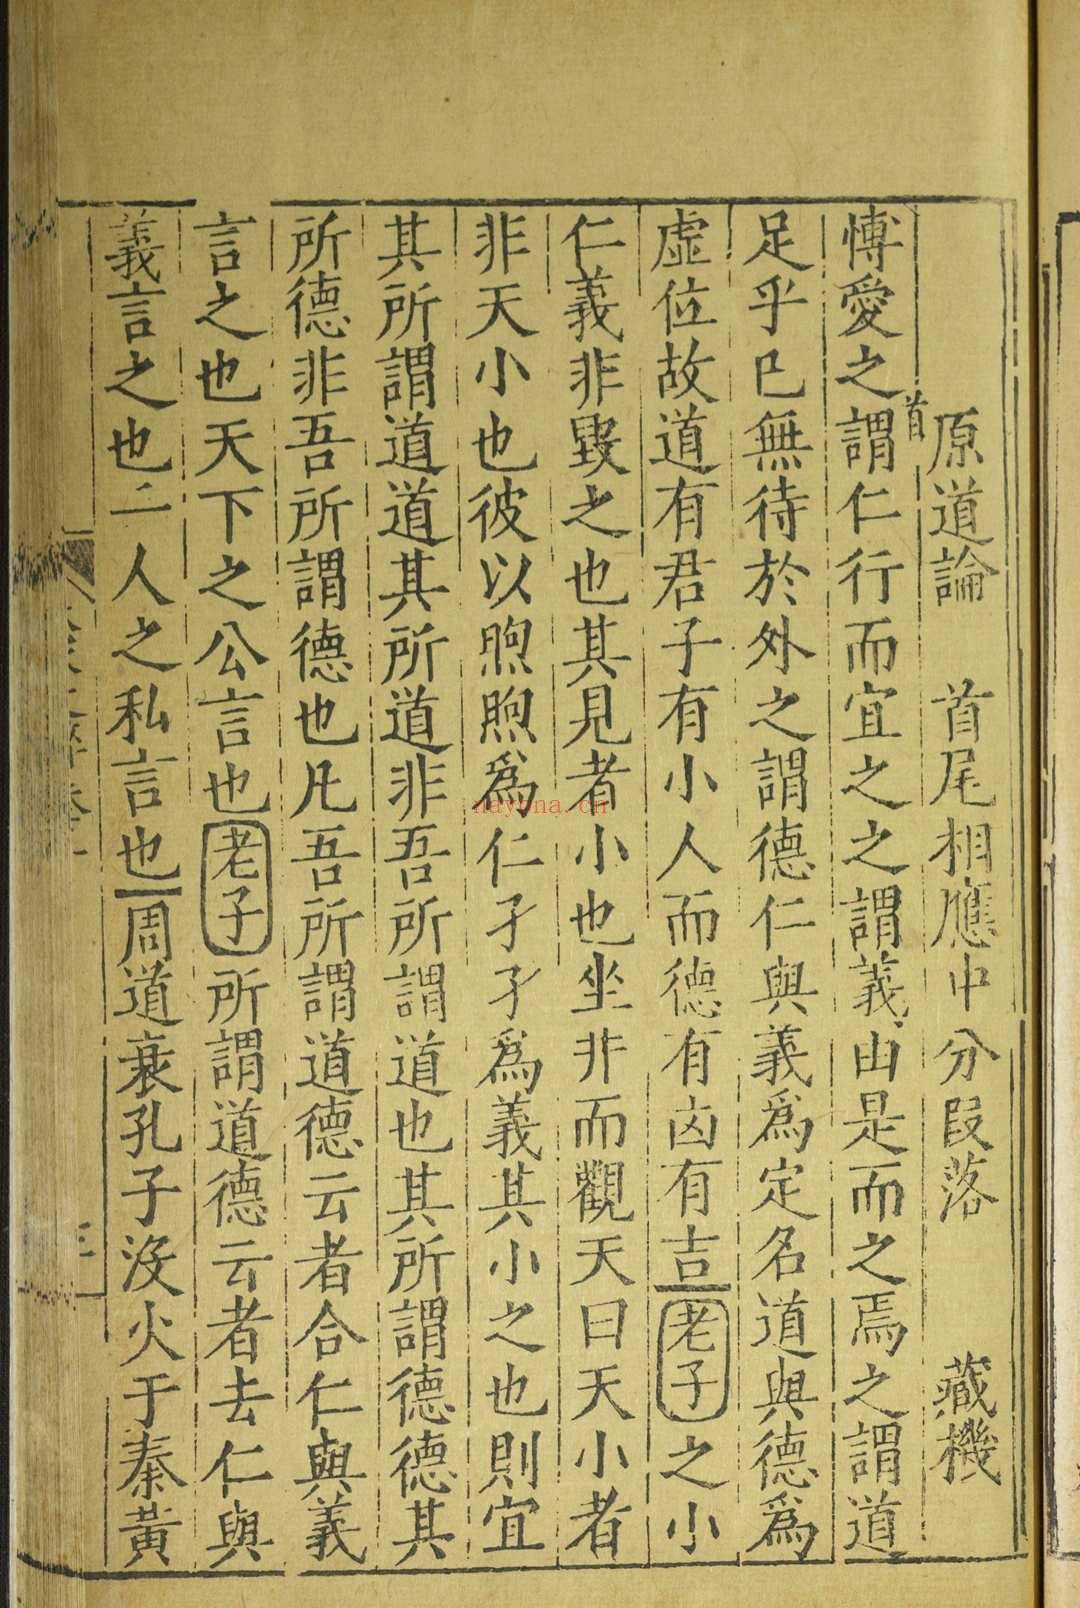 原道論　首尾相應中分段落　藏機
首
博愛之謂仁行而宜之之謂義由是而之焉之謂道
足乎已無待於外之謂德仁與義爲定名道與德爲
虛位故道有君子有小人而德有凶有吉老子之小
仁義非毀之也其見者小也坐井而觀天曰天小者
非天小也彼以煦煦爲仁孑孑爲義其小之也則宜
其所謂道道其所道非吾所謂道也其所謂德德其
所德非吾所謂德也凡吾所謂道德云者合仁與義
言之也天下之公言也老子所謂道德云者去仁與
義言之也二人之私言也周道衰孔子没火于秦黃
nayona.cn